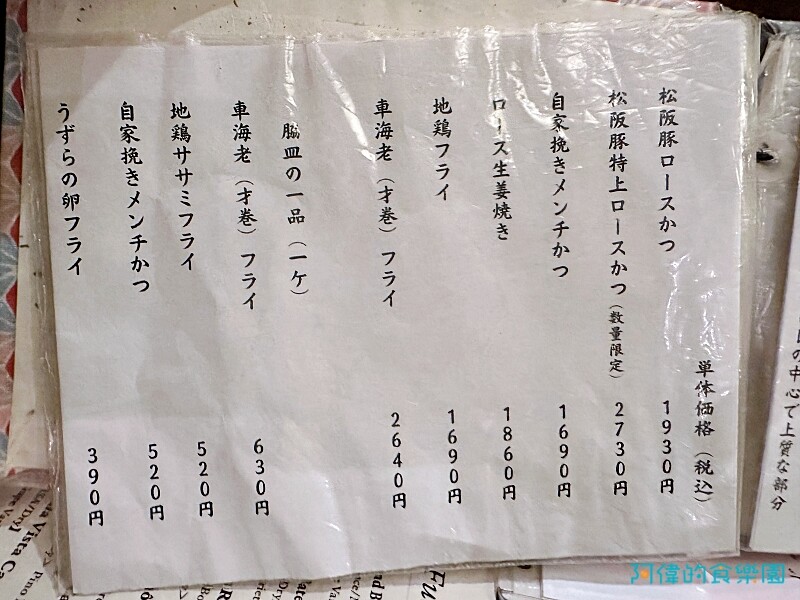 単体価格（税込）
松阪豚ロースかつ 1930円
松阪豚特上ロースかつ（数量限定） 2730円
自家挽きメンチかつ 1690円
ロース生姜焼き 1860円
地鶏フライ 1690円
車海老（才巻）フライ 2640円
脇皿の一品（一ケ）
車海老（才巻）フライ 630円
地鶏ササミフライ 520円
自家挽きメンチかつ 520円
うずらの卵フライ 390円
の中心で上質な部分
Vista Ca
阿偉的食樂園